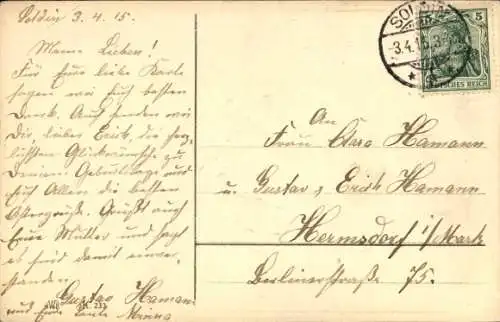 Soldin 3. 4. 15.
Meine Lieben!
Für Eure liebe Karte
sagen wir Euch besten
Dank. Auch senden wir
Dir, lieber Erich, die herz-
lichsten Glückwünsche zu
Deinem Geburtstage und
Euch Allen die besten
Ostergrüße. Grüßt auch
Eure Mutter und sagt
es sind damit einver-
standen
Gustav Hamann
und Eure Tante Minna
SOLDIN
3.4.15.3-
5
DEUTSCHES REICH
An
Frau Clara Hamann
u. Gustav u. Erich Hamann
Hermsdorf i/Mark
Berlinerstraße 75.
WB
233